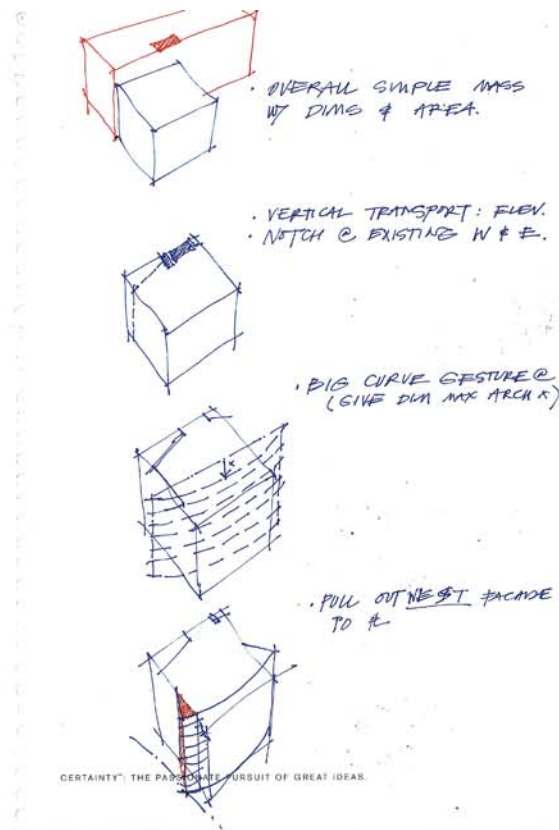 · OVERALL SIMPLE MASS
W/ DIMS & AREA.
· VERTICAL TRANSPORT: ELEV.
· NOTCH @ EXISTING W & E.
· BIG CURVE GESTURE @
(GIVE DIM MAX ARCH X)
· PULL OUT WEST FACADE
TO ⅊
CERTAINTY™: THE PASSIONATE PURSUIT OF GREAT IDEAS.